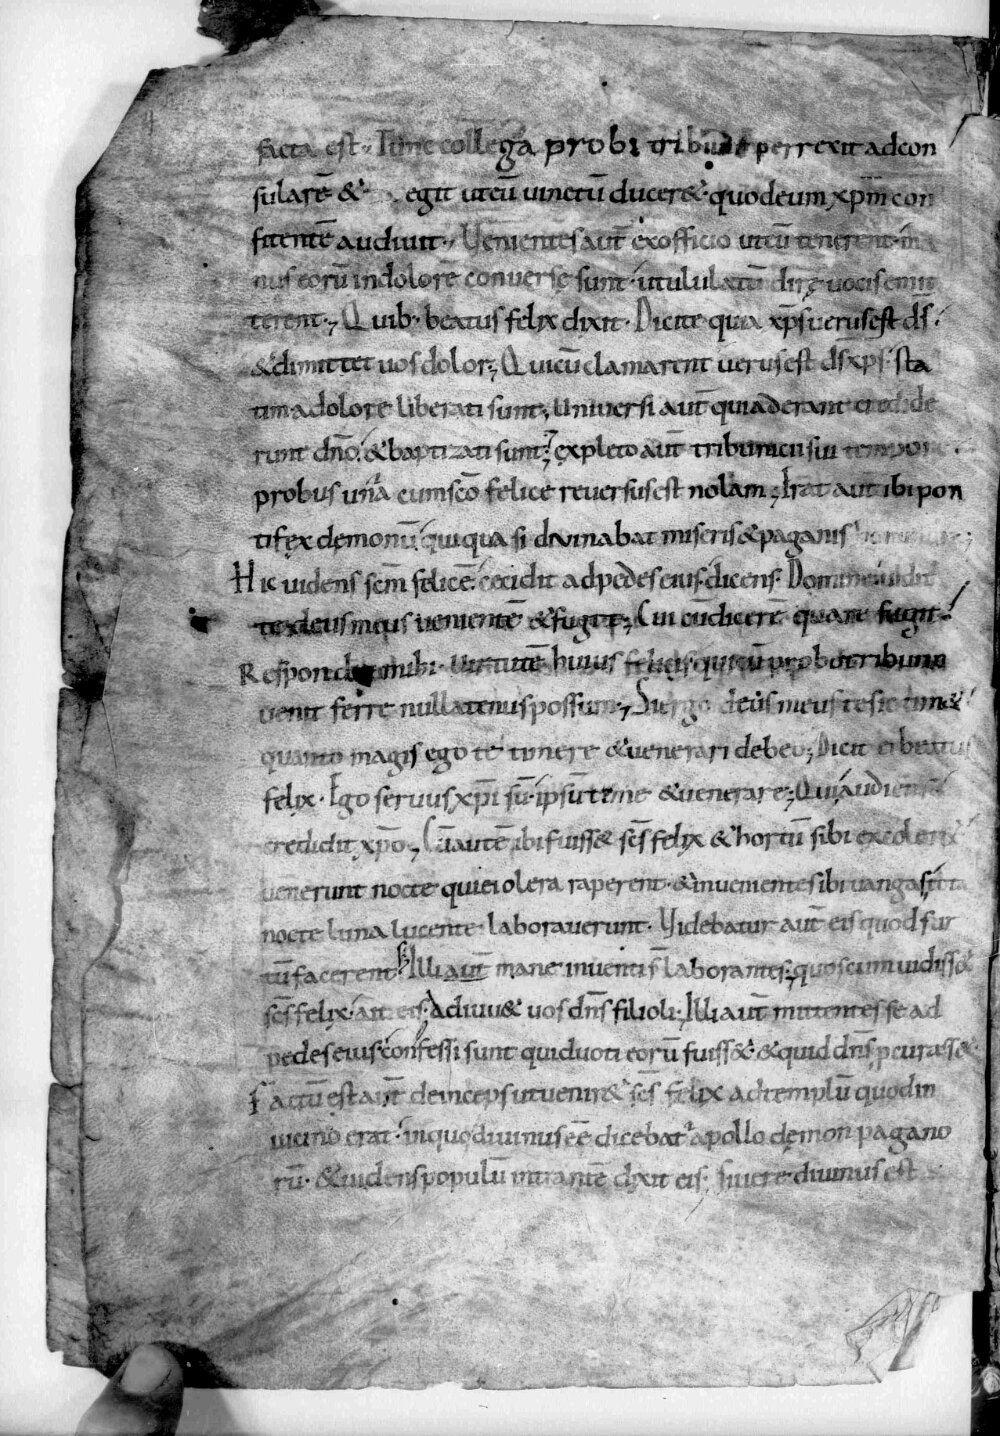 facta est. Tunc collega probi tribuni perrexit ad con
sularē & egit ut cū uinctū ducer& quod eum xp̄m con
fitentē audiuit. Uenientes aut̄ ex officio ut cū tenerent ma
nus eorū in dolorē conuersę sunt ut ululatū dirę uocis emit
terent. Quib· beatus felix dixit. Dicite quia xp̄s uerus est d̄s.
& dimittet uos dolor; Qui cū clamarent uerus est d̄s xp̄s sta
tim a dolore liberati sunt; Uniuersi aut̄ qui aderant credide
runt dn̄o. & baptizati sunt; expleto aut̄ tribunicii sui tempore
probus una cum sc̄o felice reuersus est nolam; Erat aut̄ ibi pon
tifex dęmonū qui quasi diuinabat miseris & paganis
Hic uidens sc̄m felicē cecidit ad pedes eius dicens. Domine uidit
te deus meus uenientē & fugit; Cui cū dicerē quare fugit
Respondit mihi. Uirtutē huius felicis qui cū probo tribuno
uenit ferre nullatenus possum; Si ergo deus meus te sic tim&
quanto magis ego te timere & uenerari debeo; Dicit ei beatus
felix. Ego seruus xp̄i sū ipsū time & uenerare; Qui audiens
credidit xp̄o; Cū autē ibi fuiss& sc̄s felix & hortū sibi excoler&
uenerunt nocte qui ei olera raperent. & inuenientes ibi uangas tota
nocte luna lucente laborauerunt. Uidebatur aut̄ eis quod fur
tū facerent Illi aut̄ mane inuenti s̄ laborantes; quos cum uidiss&
sc̄s felix ait eis. Adiuu& uos dn̄s filioli. Illi aut̄ mittentes se ad
pedes eius confessi sunt quid uoti eorū fuiss& & quid dn̄s pcurass&
Factū est aut̄ deinceps ut uenir& sc̄s felix ad templū quod in
uicino erat in quo diuinus eē dicebat apollo dęmon pagano
rū. & uidens populū intrantē dixit eis. Si uere diuinus est